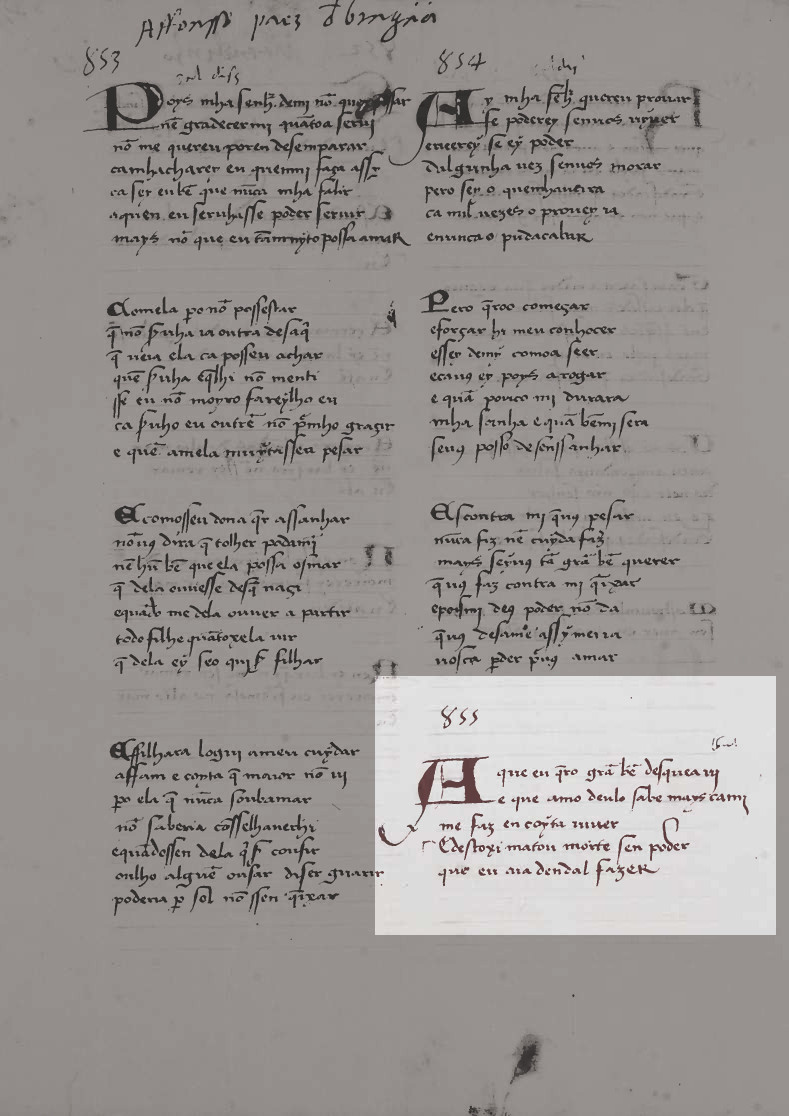 Affonsso paez d̄ bragàa
853
Poys mha senh̄. demi nō
nē gradecermi quātoa serui
nō me quereu poren desemparar
camhachareȳ en quenmi faça assȳ
ca seȳ eu bē que nūca mha falir
aquen eu seruhisse poder seruir
mays nō que eu tāmuyto possa amaR
Comela po nō possestar
q̄ nō
q̄ ueia ela ca posseu achar
quē
sse eu nō moyro fareylho eu
ca eu outrē nō
e quē amela muȳtasseu pesar
E comosseu dona q̄r assanhar
nō uꝯ dira q̄ tolher podami
nē hū bē que ela possa osmar
q̄ dela ouuesse desq̄ naçi
equādo me dela ouuer a partir
todo filhe quātoxela uir
q̄ dela eȳ seo quiser filhar
Effilhara logui ameu cuydar
affam e coyta q̄ mayor nō ui
po ela q̄ nūca soubamar
nō saberia cōsselhauerhi
equādossen dela q̄ser conssir
ou lho alguē ousar diser guarir
poderia per sol nō ssen q̄ixar
854
Ay mha senh̄. quereu prouar
se poderey senuos uyuer
eueereȳ se eȳ poder
dalgunha uez senuos morar
pero seȳ o quemhauerra
ca mil uezes o prouey ia
enunca o pudacabaR
Pero q̄roo começar
eforçar hi meu conhocer
esser demȳ comoa seer
ecauꝯ eȳ poys a rogar
e quā pouco mi durara
mha sanha e quā bēmi sera
seuꝯ posso desenssanhar
E scontra mi q̄uꝯ pesar
nūca fiz nē cuyda faz̄
mays seȳuꝯ tā grā bē querer
q̄uꝯ faz contra mi q̄ixar
epoismi deꝯ poder nō da
q̄uꝯ desame assȳ meirra
uosca perder por uꝯ amar
855
A que eu q̄ro grā bē desquea ui
e que amo deulo sabe mays cami
me faz en coyta uiuer
E destoxi matou morte sen poder
que eu aia dendal fazeR